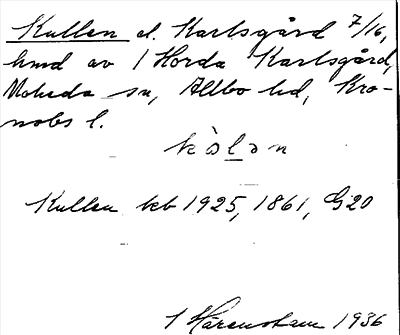 Kullen el. Karlsgård 7/16,
hmd av 1 Horda Karlsgård,
Moheda sn, Allbo hd, Kro-
nobs l.
kòlən
Kullen keb 1925, 1861, G20
1936